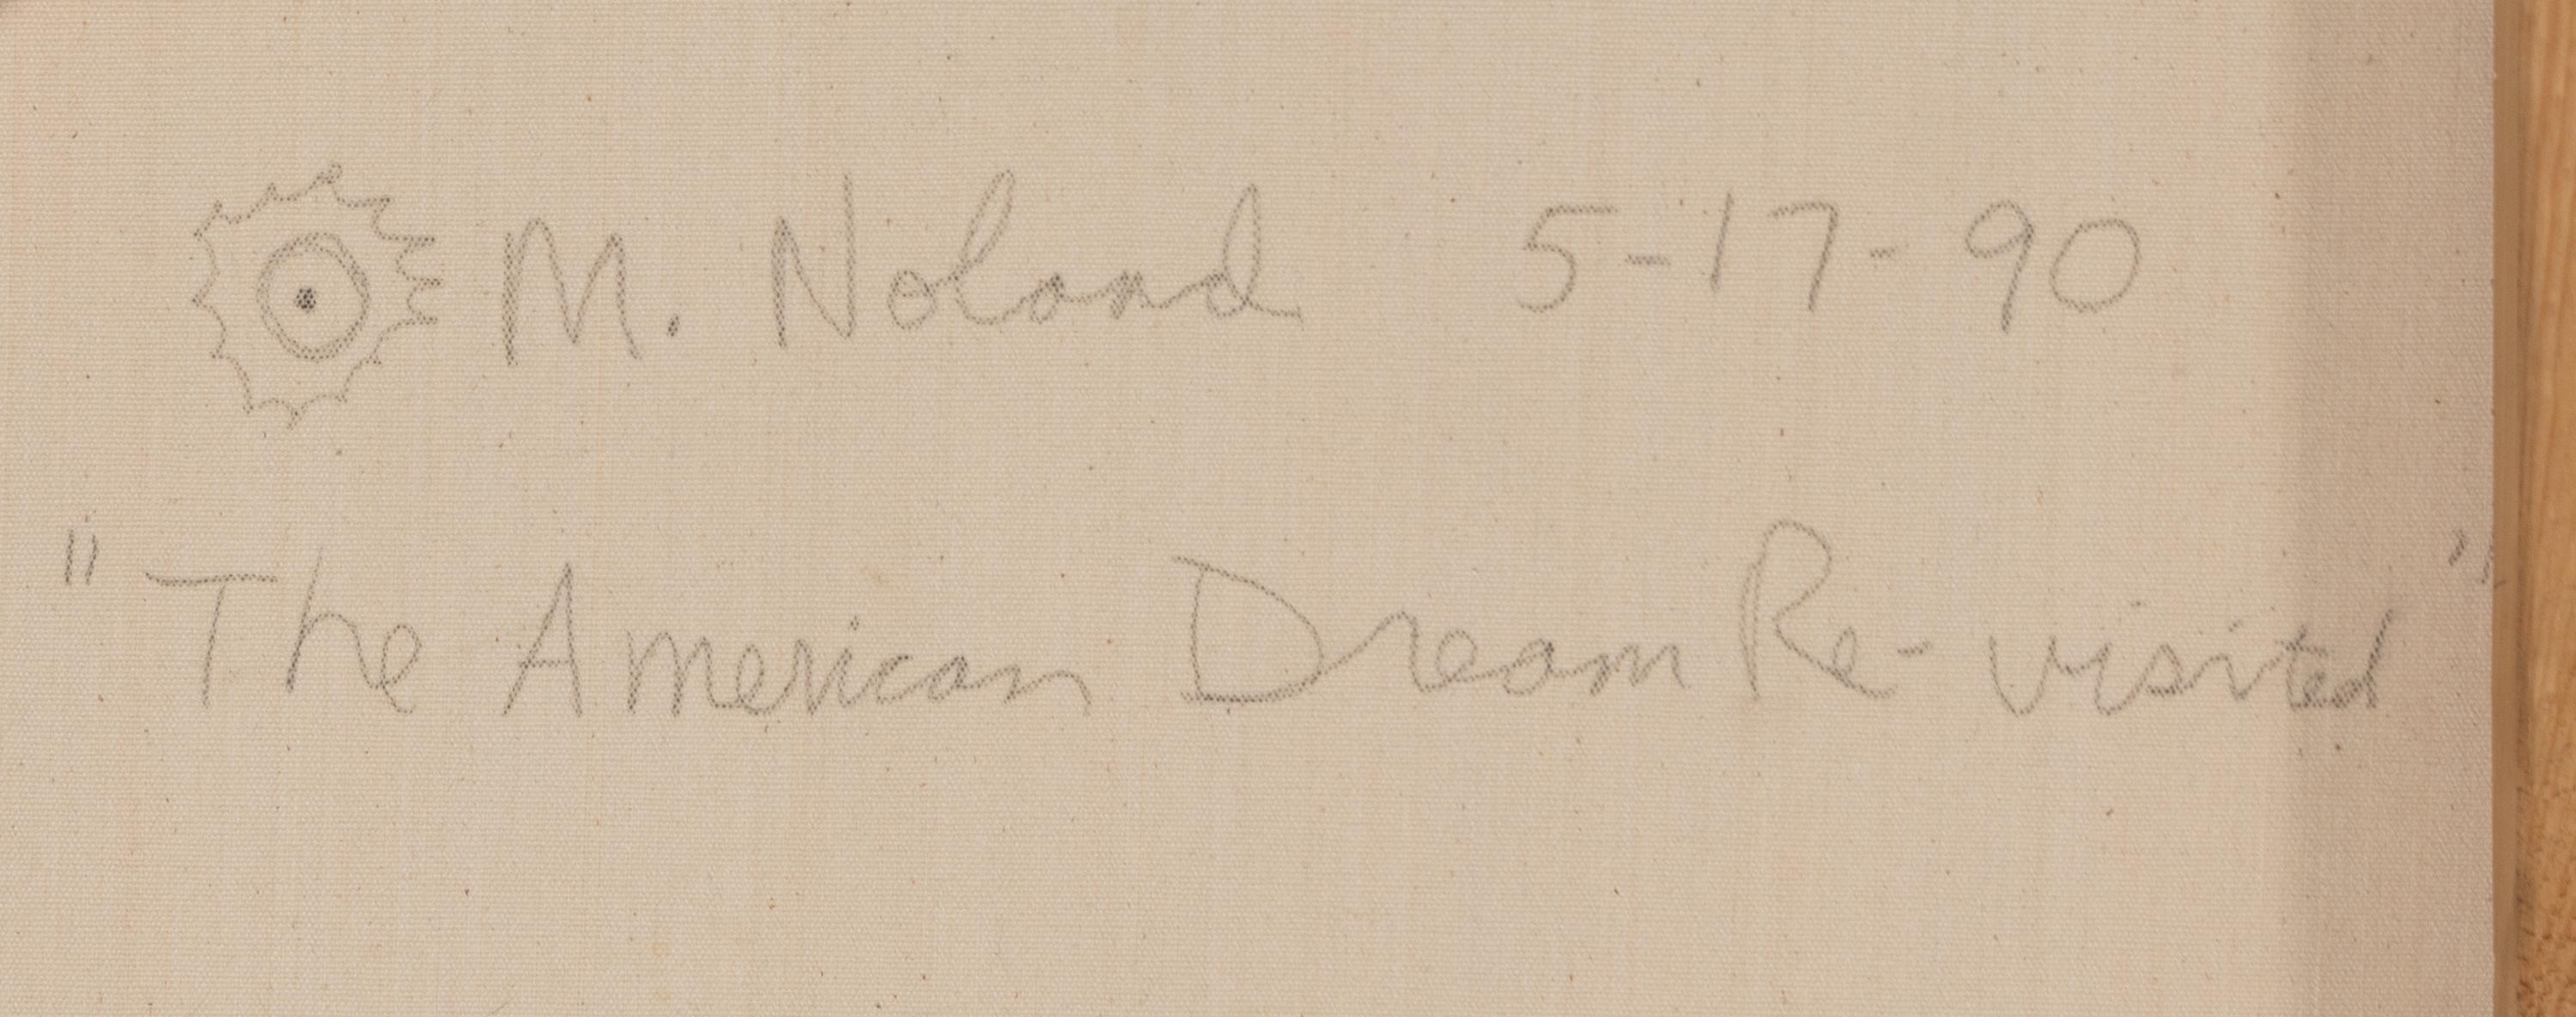 M. Noland 5-17-90
"The American Dream Re-visited"